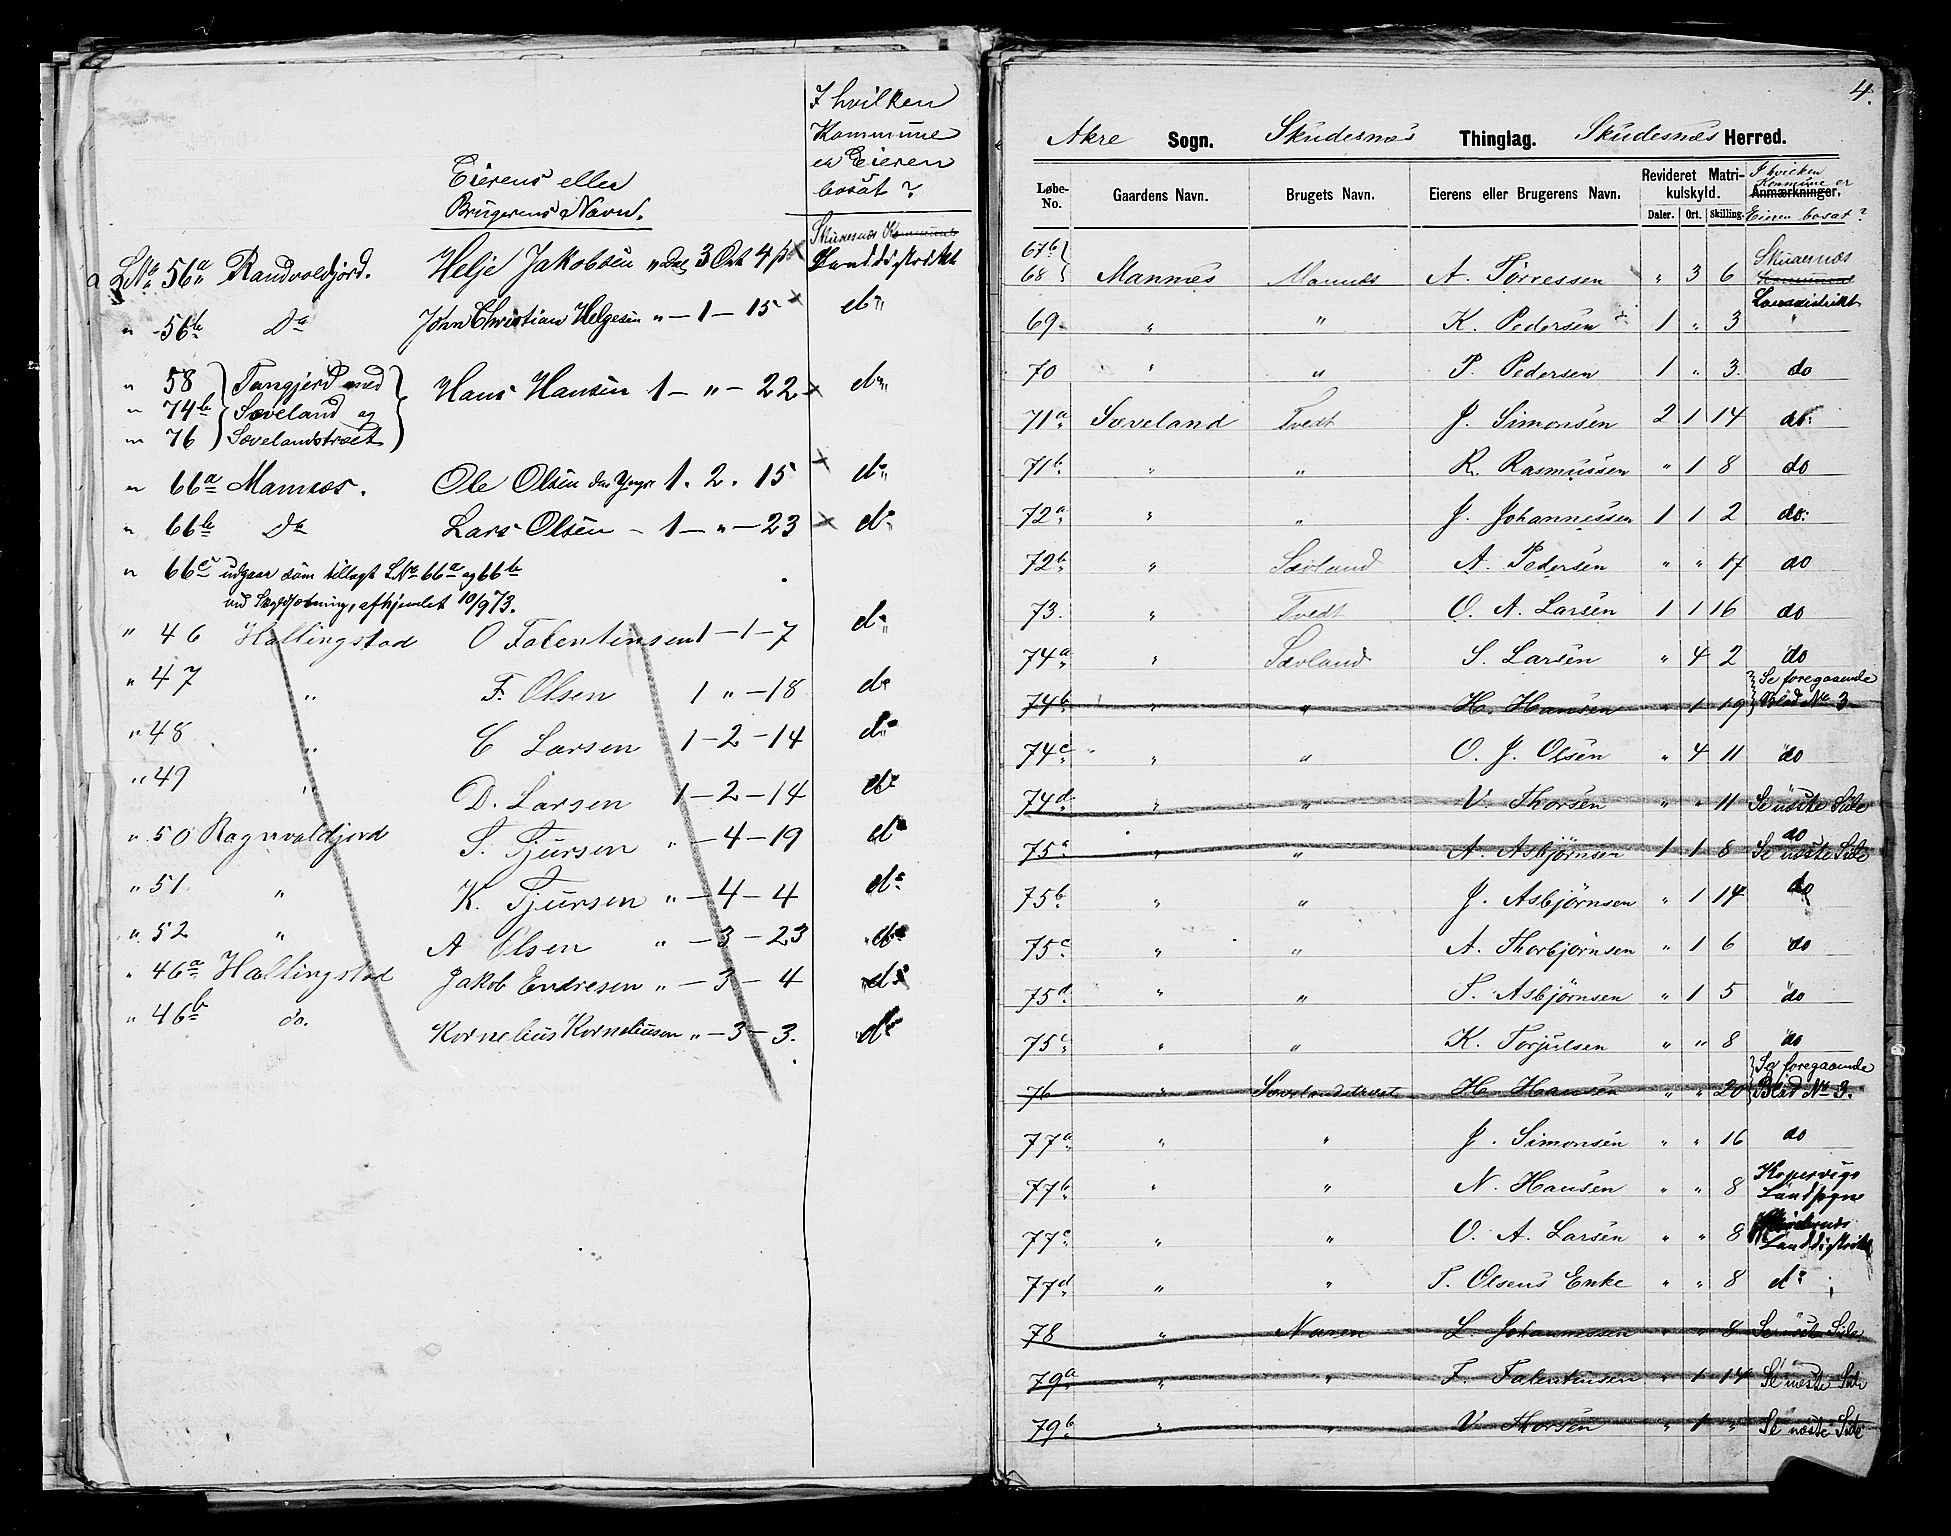 I hvilken
Kommune
er Eieren
bosat ?
Eierens eller
Brugerens Navn.
Skudesnæs Kommunes
Landdistrikt
LNo 56a Randvoldjord. Helje Jakobsen " Dal 3 Ort 4 ß
" 56b Do John Christian Helgesen " - 1 - 15 do
" 58 Tangjerd med
" 74b Sæveland og Hans Hansen 1 - " - 22 do
" 76 Sævelandstræet
" 66a Mannæs. Ole Olsen den Yngre 1. 2. 15 do
" 66b Do Lars Olsen - 1 - " - 23 do
" 66c udgaar som tillagt LNo 66a og 66b
ved afhjemlet 10/9 73.
" 46 Hallingstad O Falentinsen 1 - 1 - 7 do
" 47 " F. Olsen 1 " - 18 do
" 48 " C Larsen 1 - 2 - 14 do
" 49 " D. Larsen 1 - 2 - 14 do
" 50 Ragnvaldjord S. Tjursen " - 4 - 19 do
" 51 " K. Tjursen " - 4 - 4 do
" 52 " A Olsen " - 3 - 23 do
" 46a Hallingstad Jakob Endresen " - 3 - 4 do
" 46b do. Kornelius Korneliusen " - 3 - 3. do
4.
Akre Sogn. Skudesnæs Thinglag. Skudesnæs Herred.
Løbe-No. Gaardens Navn. Brugets Navn. Eierens eller Brugerens Navn. Revideret Matrikulskyld. Anmærkninger.
Daler. Ort. Skilling.
I hvilken Kommune er Eieren bosat ?
67b
68 Mannæs Mannæs A. Tørressen " 3 6 Skudesnæs Kommunes Landdistrikt
69 " " K. Pedersen 1 " 3 "
70 " " P. Pedersen 1 " 3. do
71a Sæveland Tvedt J. Simonsen 2 1 14 do
71b " " R. Rasmussen " 1 8 do
72a " " J. Johannessen 1 1 2 do
72b " Sævland A. Pedersen " " 17 do
73. " Tvedt O. A. Larsen 1 1 16 do
74a " Sævland S. Larsen " 4 2 do
74b " " H. Hansen " 1 19 Se foregaaende Blad No 3
74c " " O. J. Olsen " 4 11 do
74d " " V. Thorsen " " 11 Se næste Side
75a " " A. Asbjørnsen 1 1 8 do Se næste Side
75b " " J. Asbjørnsen " 1 14 do
75c " " A. Thorbjørnsen " 1 6 do
75d " " S. Asbjørnsen " 1 5 do
75e " " K. Torjulsen " " 8 do
76 " Sævelandstræet H. Hansen " " 20 Se foregaaende Blad No 3.
77a " " J. Simonsen " " 16 do
77b " " N. Hansen " " 8 Kopervigs Landsogne
77c " " O. A. Larsen " " 8 Skudesnæs Landdistrikt
77d " " T. Olsens Enke " " 8 do
78 " Naren L. Johannessen " " 8 Se næste Side
79a " " F. Falentinsen " 1 14 Se næste Side
79b " " V. Thorsen " 1 " Se næste Side